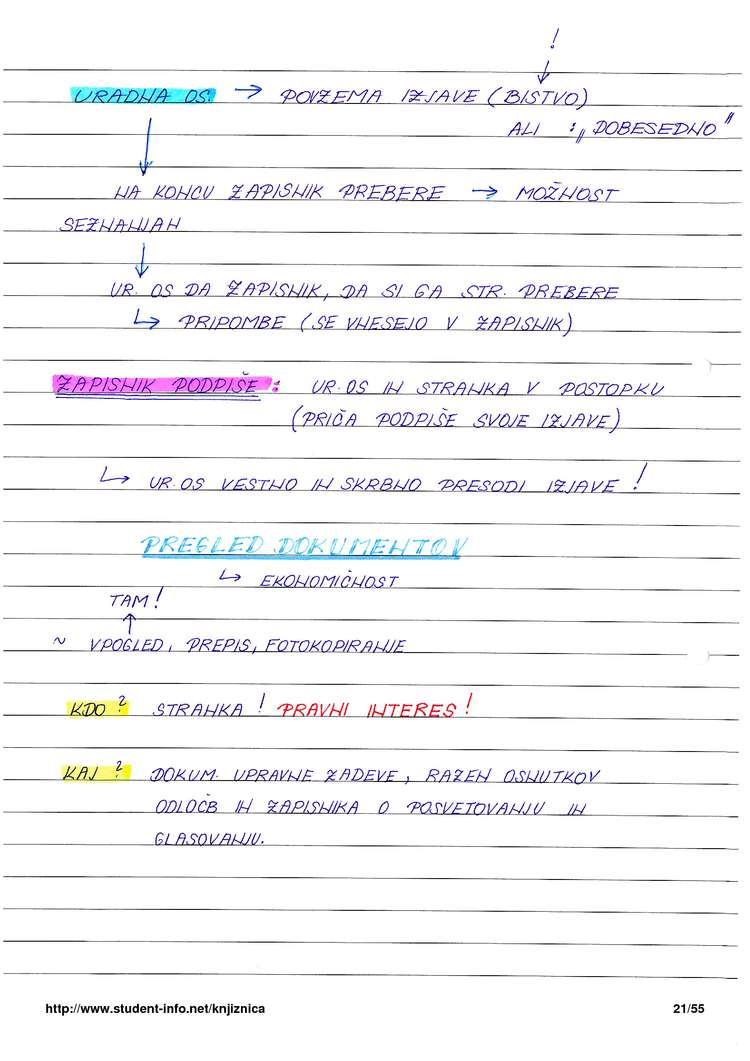 !
URADNA OS. → POVZEMA IZJAVE (BISTVO)
ALI : „DOBESEDNO"
NA KONCU ZAPISNIK PREBERE → MOŽNOST
SEZNANJAN
UR. OS DA ZAPISNIK, DA SI GA STR. PREBERE
↳ PRIPOMBE (SE VNESEJO V ZAPISNIK)
ZAPISNIK PODPIŠE : UR. OS IN STRANKA V POSTOPKU
(PRIČA PODPIŠE SVOJE IZJAVE)
↳ UR. OS VESTNO IN SKRBNO PRESODI IZJAVE !
PREGLED DOKUMENTOV
↳ EKONOMIČNOST
TAM!
~ VPOGLED, PREPIS, FOTOKOPIRANJE
KDO? STRANKA! PRAVNI INTERES!
KAJ? DOKUM. UPRAVNE ZADEVE, RAZEN OSNUTKOV
ODLOČB IN ZAPISNIKA O POSVETOVANJU IN
GLASOVANJU.
http://www.student-info.net/knjiznica 21/55